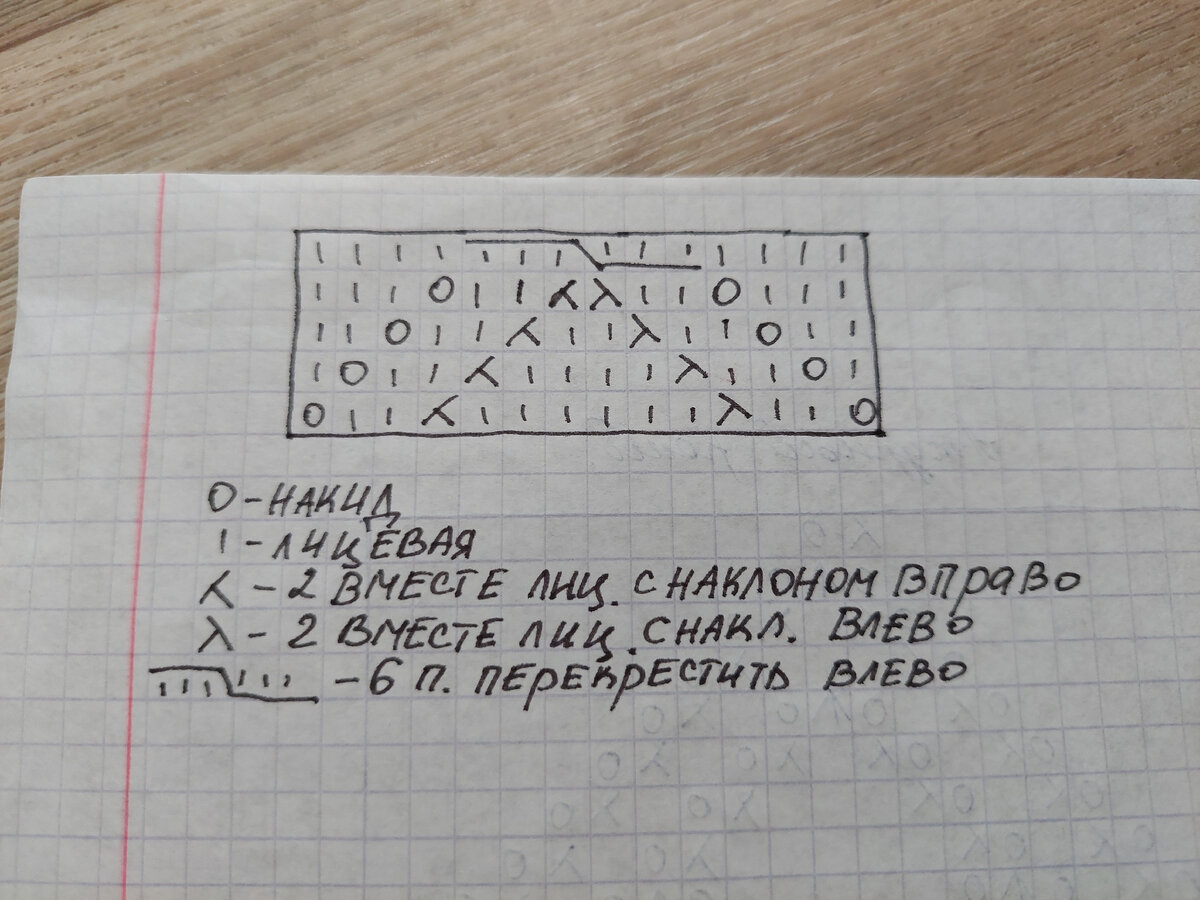 I I I I I I I I I I I I I I
I I I O I I ⋌ λ I I O I I I
I I O I I ⋌ I I λ I I O I I
I O I I ⋌ I I I I λ I I O I
O I I ⋌ I I I I I I λ I I O
O - НАКИД
I - ЛИЦЕВАЯ
⋌ - 2 ВМЕСТЕ ЛИЦ. С НАКЛОНОМ ВПРАВО
λ - 2 ВМЕСТЕ ЛИЦ. С НАКЛ. ВЛЕВО
I I I I I I - 6 П. ПЕРЕКРЕСТИТЬ ВЛЕВО